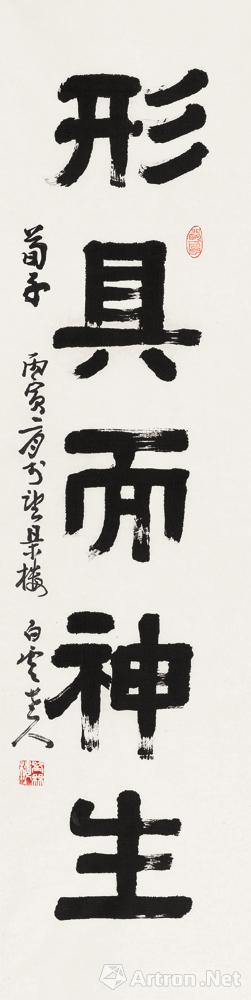 形具而神生
荀子 丙寅二月于望景楼 白云老人
Artron.Net